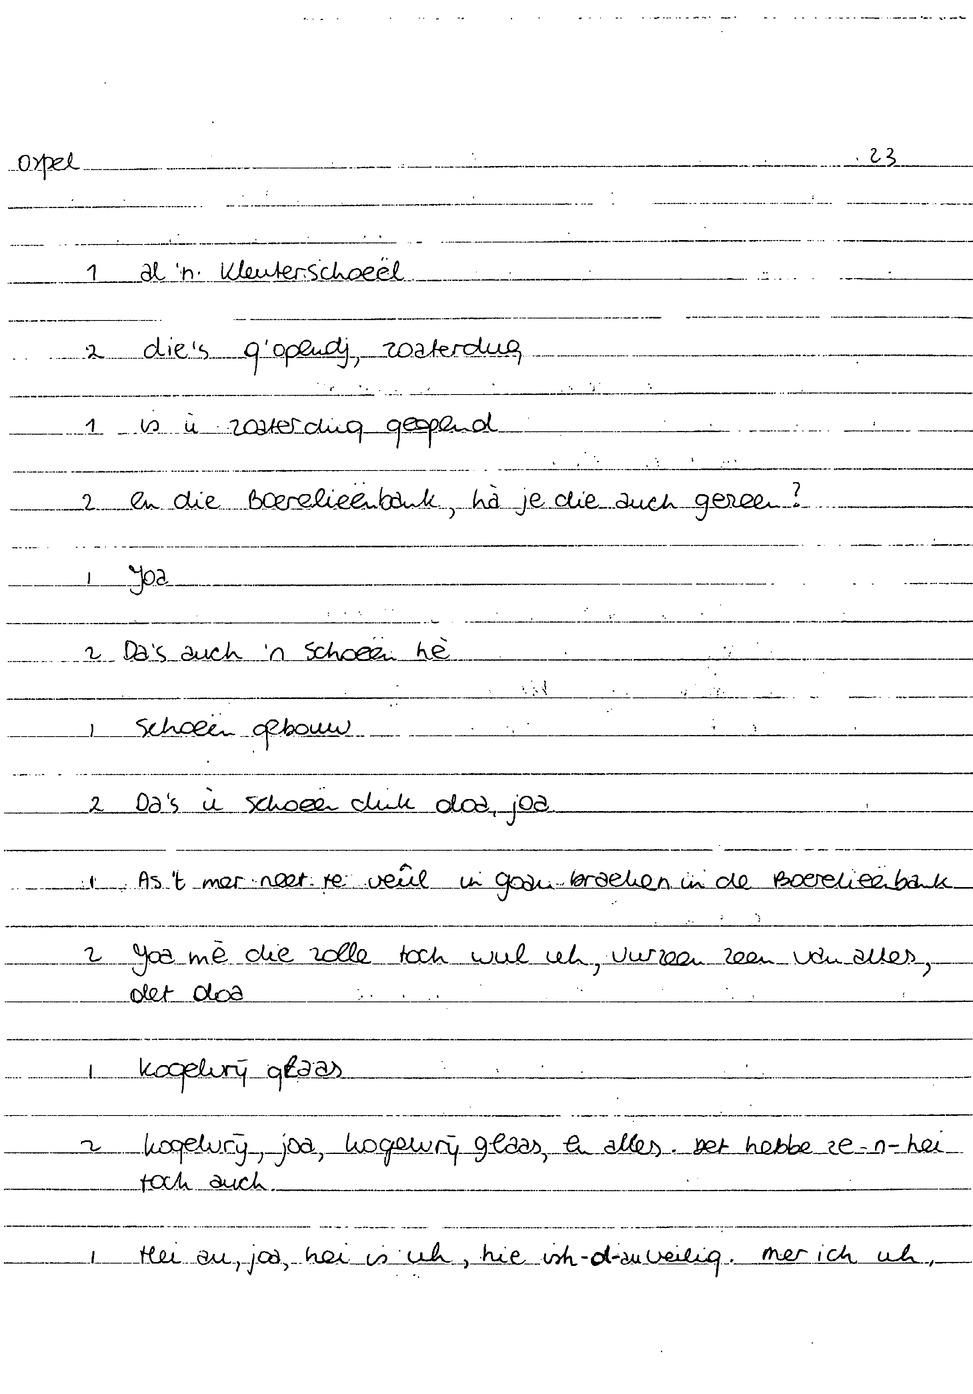 Ospel 23
1 al 'n. kleuterschoeël
2 die's g'opendj, zoaterdug
1 is ù zoaterdug geopend
2 en die Boerelieënbank, hà je die auch gezeen?
1 Joa
2 Da's auch 'n schoeën hè
1 schoeën gebouw
2 Da's ù schoeën duk doa, joa
1 As 't mer neet te veûl in goan braeken in de Boerelieënbank
2 Joa mè die zolle toch wul uh, vurzeen zeen van alles,
det doa
1 kogelvrij glaas
2 kogelvrij, joa, kogelvrij glaas, en alles. Det hebbe ze-n-hei
toch auch
1 Hei au, joa, hei is uh, hie ish-d-au veilig. mer ich uh,